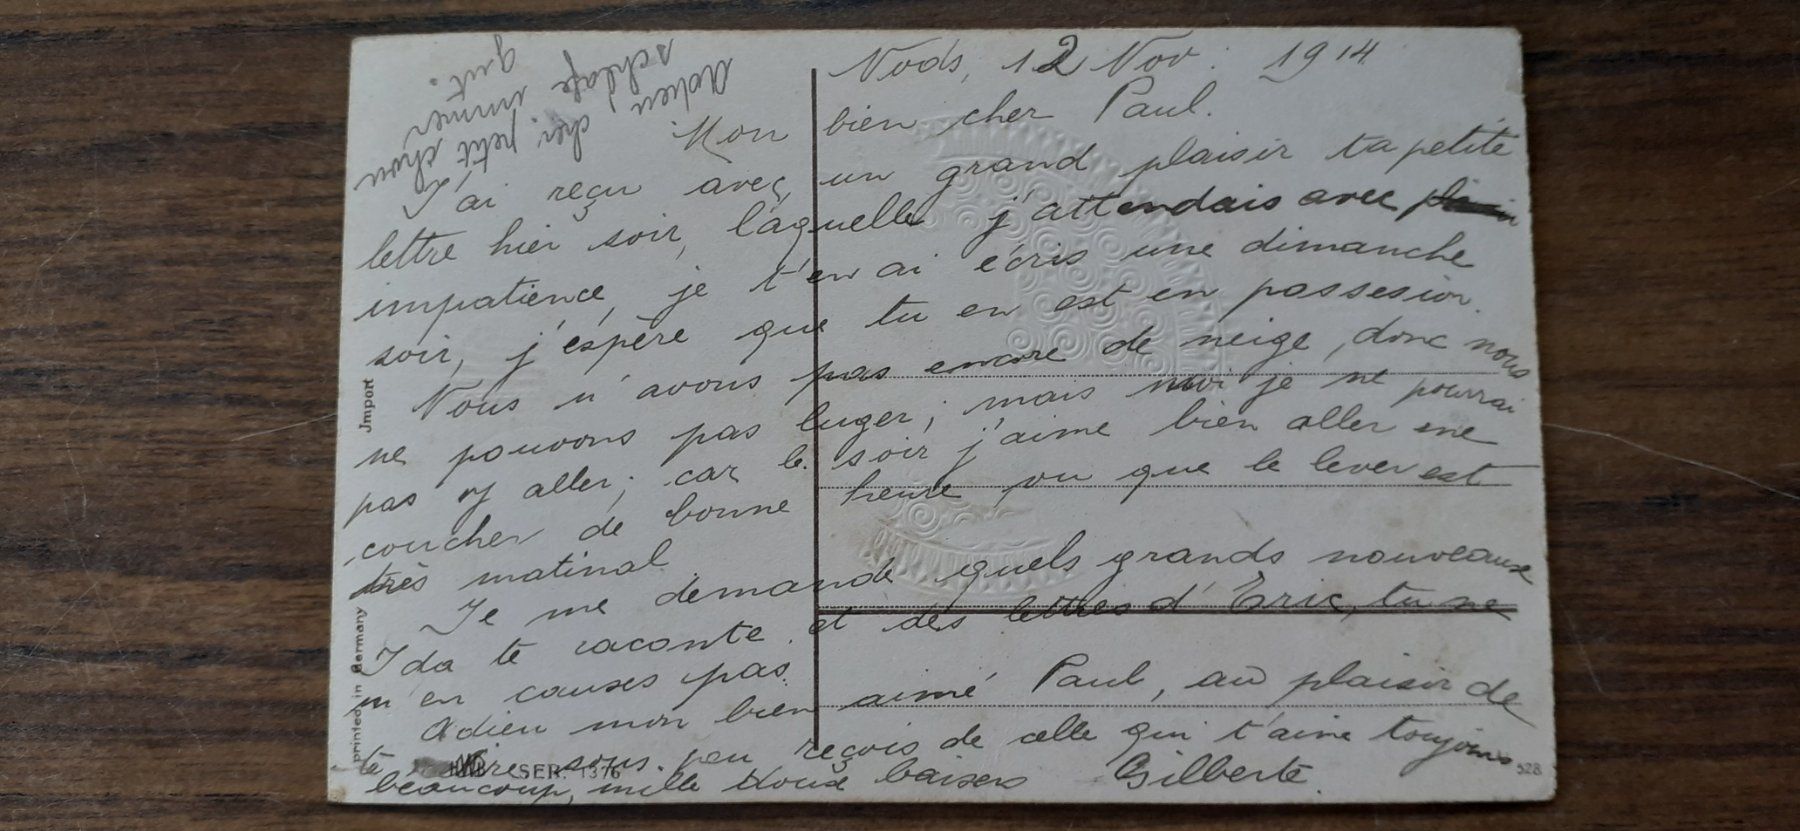 Nods, 12 Nov. 1914
Mon bien cher Paul.
J'ai reçu avec un grand plaisir ta petite
lettre hier soir, laquelle j'attendais avec
impatience, je t'en ai écris une dimanche
soir, j'éspère que tu en est en possesion.
Nous n'avons pas encore de neige, donc nous
ne pouvons pas luger; mais moi je ne pourrai
pas y aller; car le soir j'aime bien aller me
coucher de bonne heure vu que le lever est
très matinal
Je me demande quels grands nouveaux
Ida te raconte et des lettres d'Eric, tu ne
m'en causes pas.
Adieu mon bien aimé Paul, au plaisir de
te lire sous peu reçois de celle qui t'aime toujours
beaucoup, mille doux baisers Gilberte.
Adieu, cher petit chou
schlafe immer
gut.
Jmport
printed in Germany
SER. 1376
528